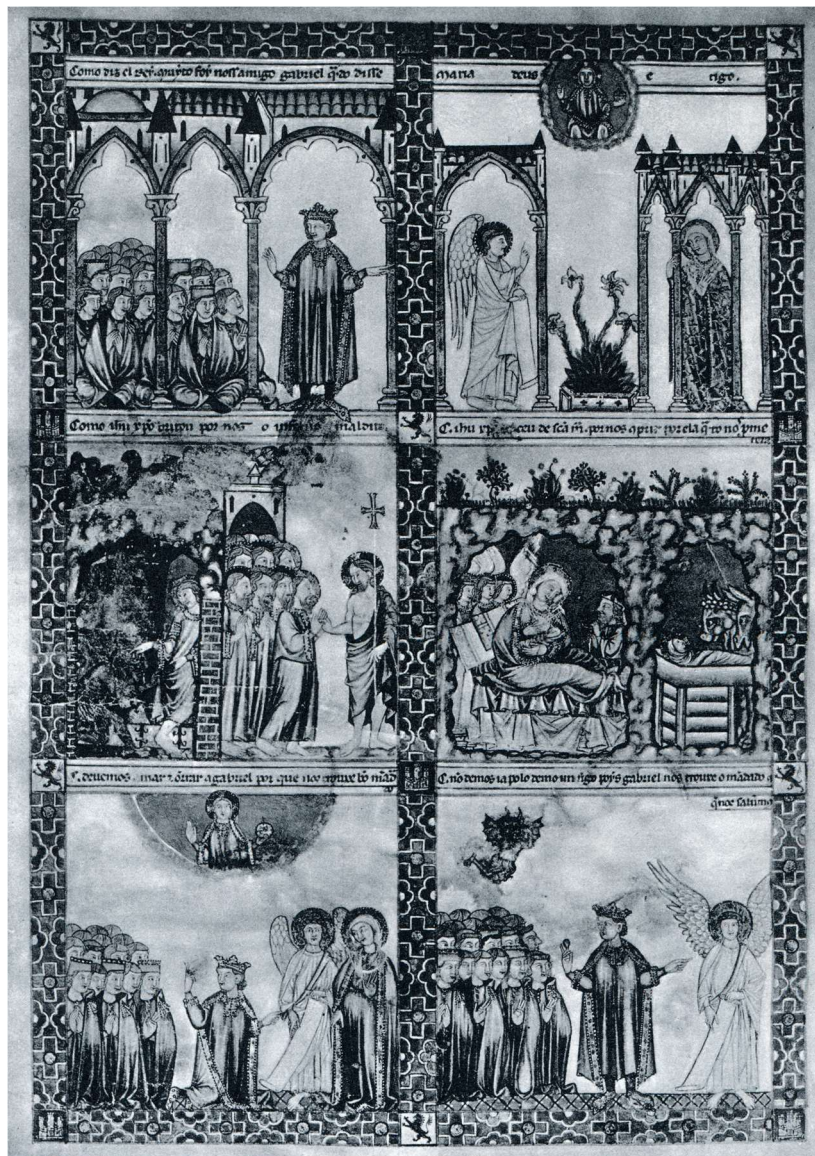 Como diz el Rey. quãto foy noss'amigo gabriel q̃do disse
maria deus e tigo.
Como ihũ xp̃o britou por nos o inferno maldito.
C. ihũ xp̃o naceu de scã m̃. por nos por ela q̃ro no
C. devemos amar ⁊ õrrar a gabriel por que nos trouxe bõ mãd
ado
C. nõ demos ia polo demo un figo poys gabriel nos trouxe o mãdado
q̃ nos saluou